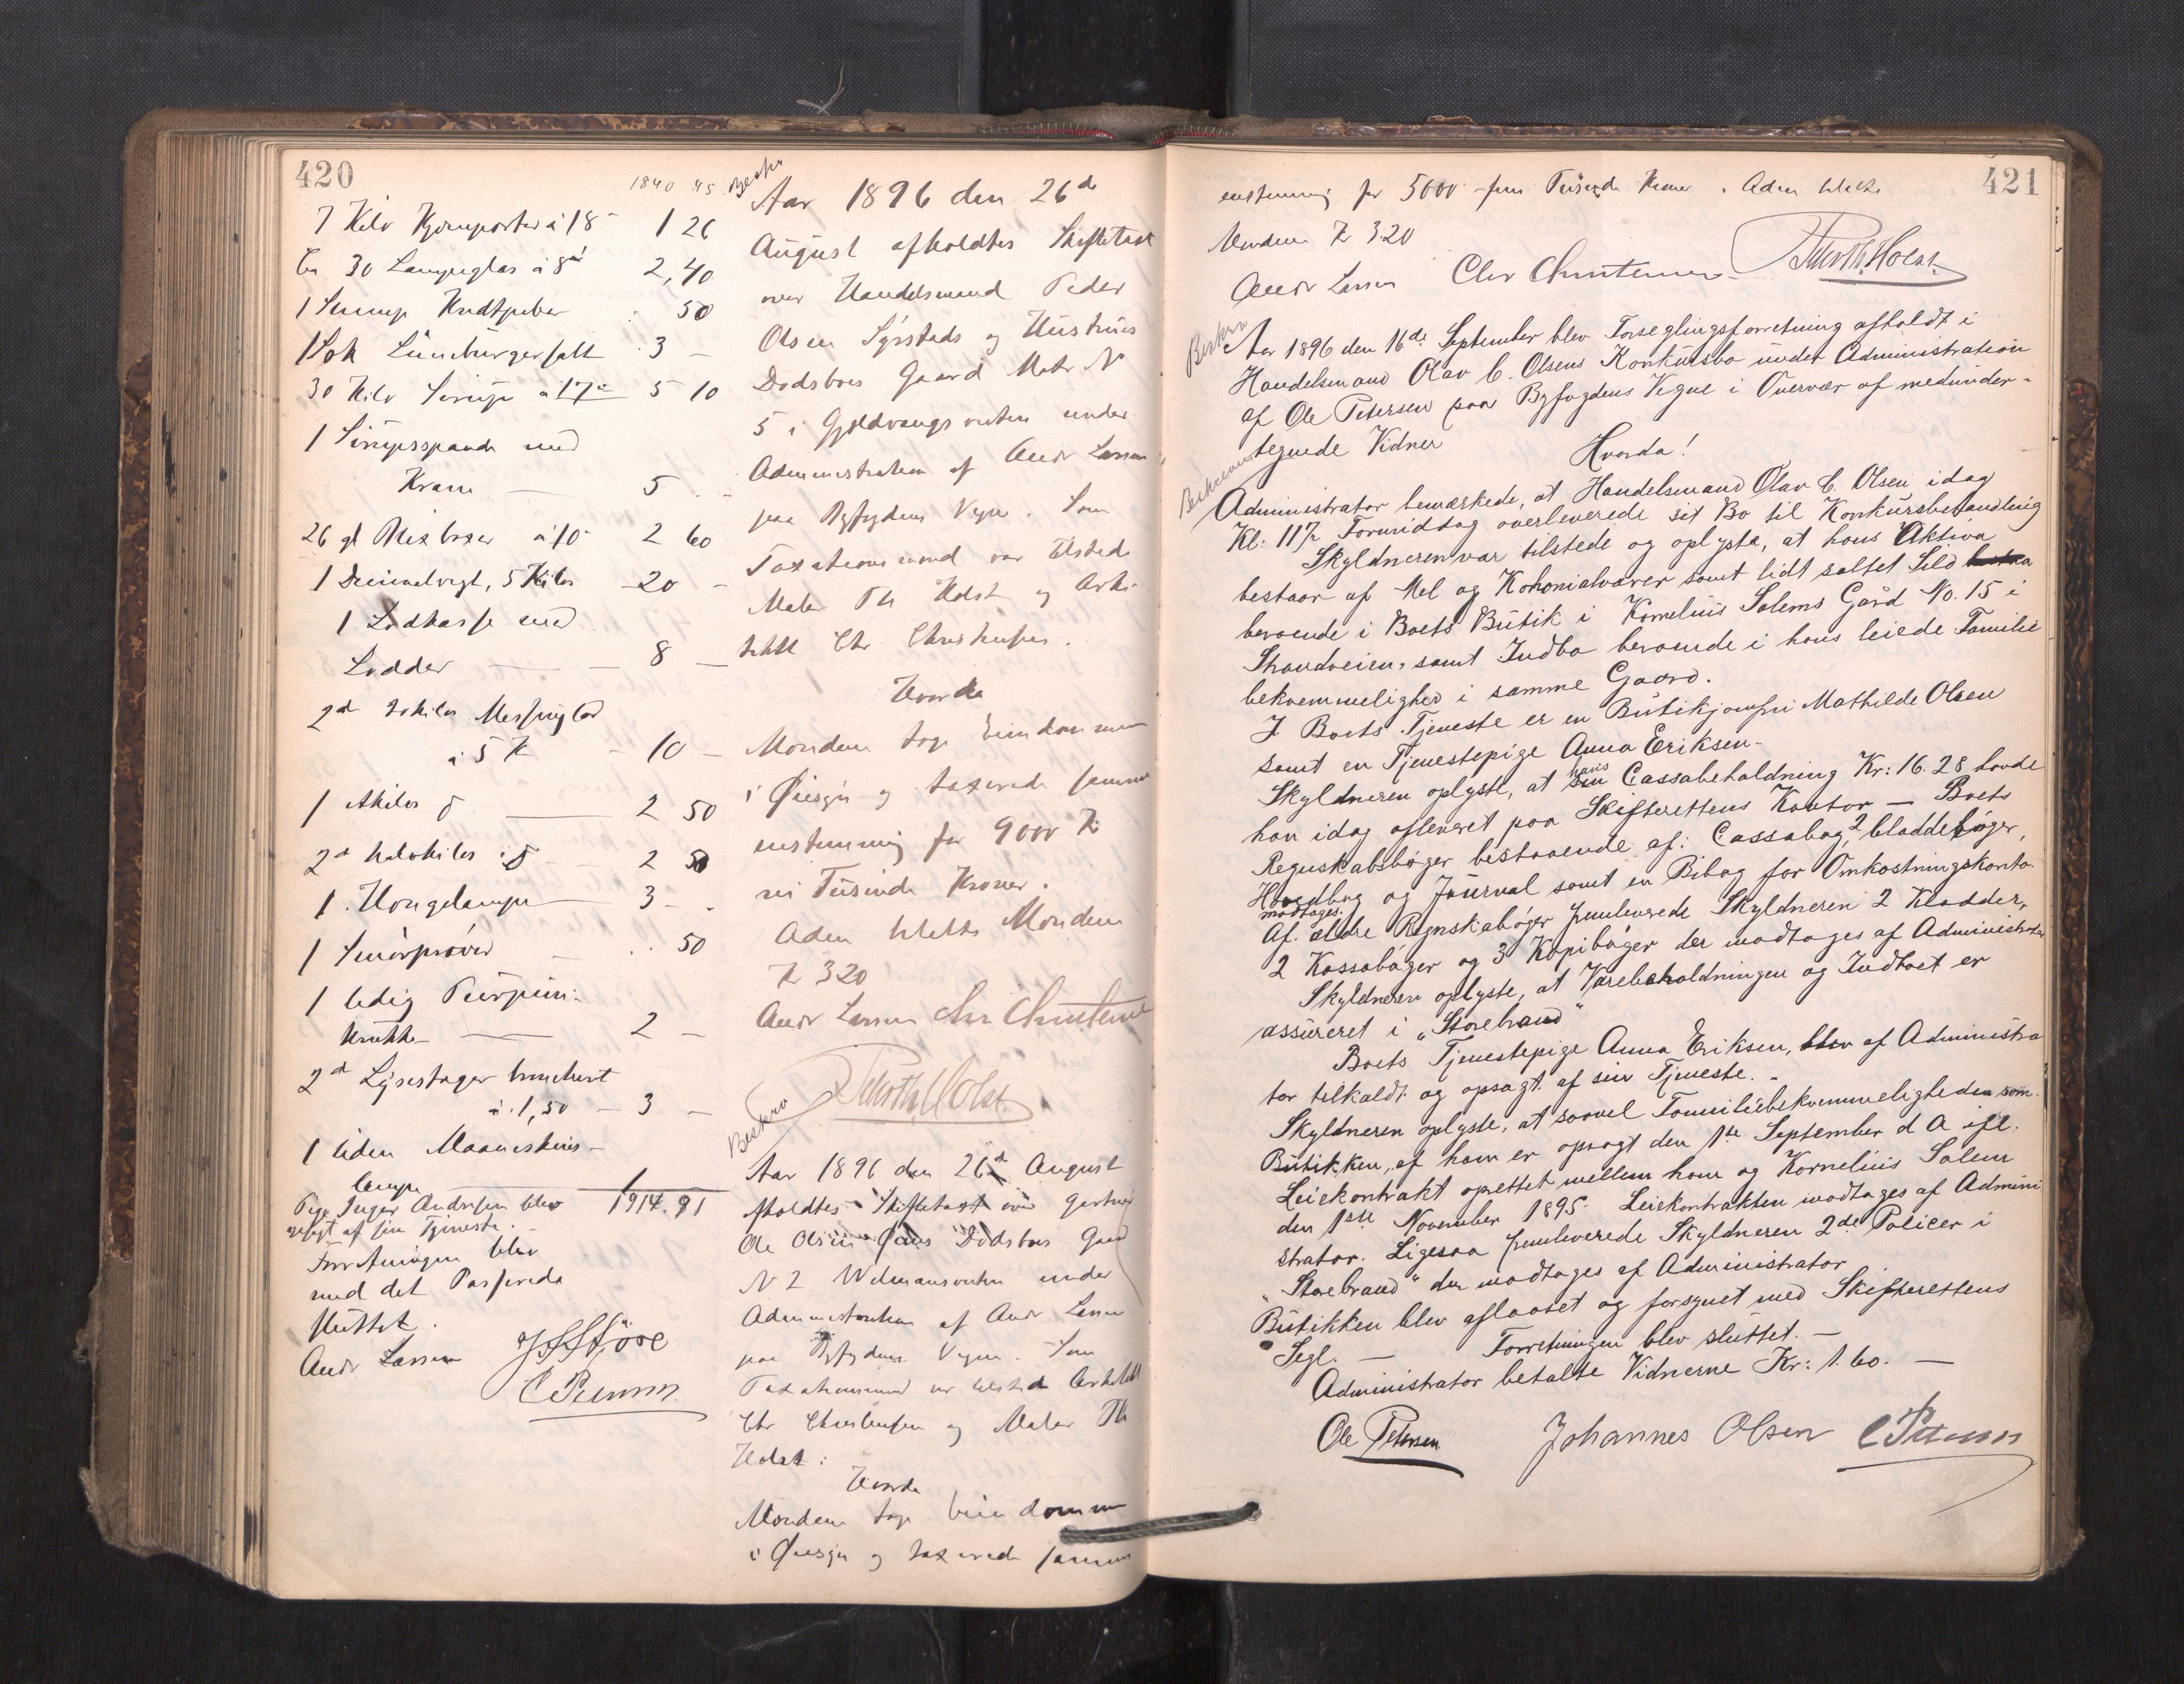 420
1840 45
7 Kilo Kjernporter à 18 1 26
Ca 30 Lampeglas à 8 2,40
1 Sump Knapper 50
1 Sæk Lüneburgersalt 3 —
30 Kilo Sirup à 17 5 10
1 Sirupsspande med
Kran — 5
26 gl Blikboxer à 10 2 60
1 Decimalvægt, 5 Kilos 20 —
1 Lodkasse med
Lodder — 8 —
2 Messinglod
à 5 Kr — 10 —
1 2 50
2 halvkilos 2 50
1 Hængelampe 3 —
1 Smørprøver 50
1 ledig
Krukke — 2 —
2 Lysestager
à 1,50 — 3 —
1 liden Maaneskins-
lampe
1914.91
Pige Inger Andresen blev
opsagt af sin Tjeneste.
Forretningen blev
med det Passerede
sluttet.
Andr Larsen
C Petersen
Beskr
Aar 1896 den 26de
August afholdtes Skiftetaxt
over Handelsmand Peder
Olsen og Hustrues
Dødsboes Gaard Matr N
5 i under
Administration af Andr Larsen
paa Byfogdens Vegne. Som
Taxationsmænd var tilstede
Maler Th Holst og Arki-
tekt Chr Christensen.
Hvorda
Mændene tog Eiendommen
i Øiesyn og taxerede samme
enstemmig for 9000 Kr
ni Tusinde Kroner.
Adm betalte Mændene
Kr 3 20
Andr Larsen Chr Christensen
Th. Holst.
Beskr
Aar 1896 den 26de August
afholdtes Skiftetaxt over Gartner
Ole Olsen Dødsboes Gaard
N 2 under
Administration af Andr Larsen
paa Byfogdens Vegne. Som
Taxationsmænd var tilstede Arkitekt
Chr Christensen og Maler Th
Holst:
Hvorda
Mændene tog Eiendommen
i Øiesyn og taxerede samme
421
enstemmig for 5000 fem Tusinde Kroner. Adm betalte
Mændene Kr 3.20
Andr Larsen Chr Christensen Th. Holst.
Beskr
Aar 1896 den 16de September blev Forseglingsforretning afholdt i
Handelsmand Olav C. Olsens Konkursbo under Administration
af Ole Petersen paa Byfogdens Vegne i Overvær af medunder-
tegnede Vidner
Hvorda!
Beskreven
Administrator bemærkede, at Handelsmand Olav C. Olsen idag
Kl: 11½ Formiddag overleverede sit Bo til Konkursbehandling
Skyldneren var tilstede og oplyste, at hans Aktiva
bestaar af Mel og Kohonialvarer samt lidt saltet Sild
beroende i Boets Butik i Kornelius Salems Gård No. 15 i
Strandveien, samt Indbo beroende i hans leiede Familie
bekvemmeligher i samme Gaard.
I Boets Tjeneste er en Butikjomfru Mathilde Olsen
samt en Tjenestepige Anna Eriksen.
Skyldneren oplyste, at hans Cassabeholdning Kr: 16.28 havde
han idag afleveret paa Skifterettens Kontor — Boets
Regnskabsbøger bestaaende af: Cassabog, 2 kladdebøger,
Hovedbog og Journal samt en Bibog for Omkostningskonto
modtages.
Af ældre Regnskabøger fremleverede Skyldneren 2 Kladder,
2 Kassabøger og 3 Kopibøger der modtages af Administrator
Skyldneren oplyste, at Varebeholdningen og Indboet er
assureret i „Storebrand“
Boets Tjenestepige Anna Eriksen, blev af Administra
tor tilkaldt og opsagt af sin Tjeneste. -
Skyldneren oplyste, at saavel Familiebekvemmeligheden som
Butikken, af ham er opsagt den 1ste September d A ifl.
Leiekontrakt oprettet mellem ham og Kornelius Salem
den 1ste November 1895. Leiekontrakten modtages af Admini
strator. Ligesaa fremleverede Skyldneren 2de Policer i
„Storebrand“ der modtages af Administrator
Butikken blev aflaaset og forsynet med Skifterettens
Segl. — Forretningen blev sluttet. —
Administrator betalte Vidnerne Kr: 1.60. —
Ole Petersen Johannes Olsen C Petersen